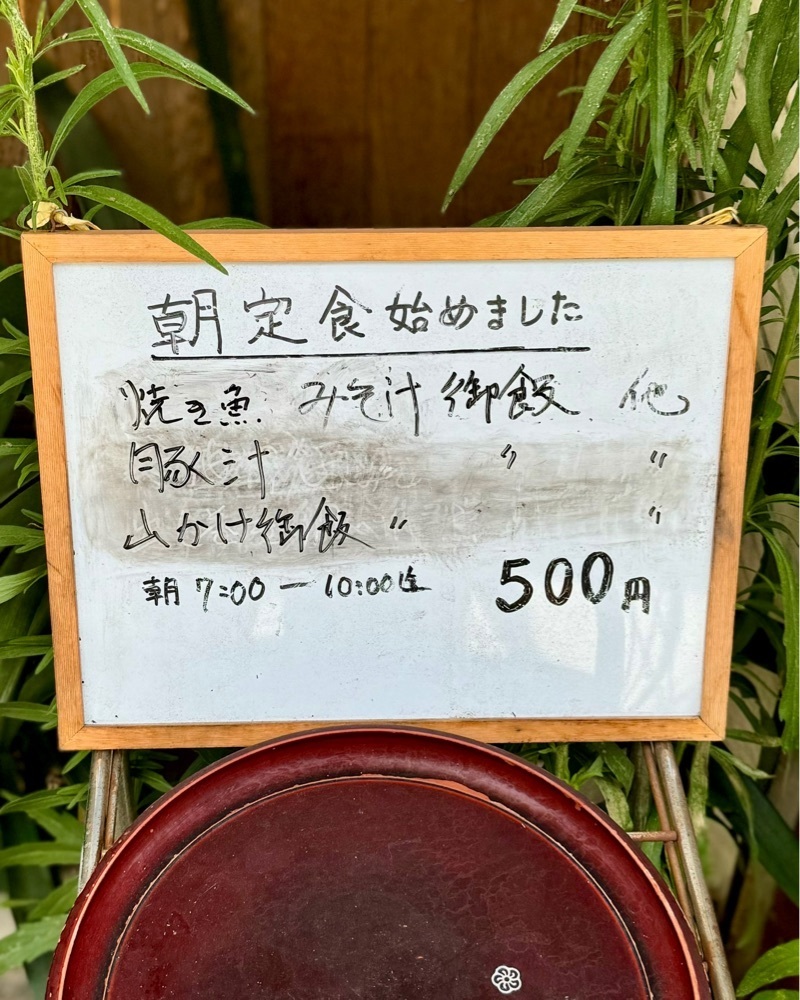 朝定食始めました
焼き魚 みそ汁 御飯 他
豚汁 〃 〃
山かけ御飯 〃 〃
朝 7:00 ー 10:00迄 500円